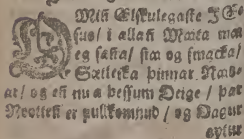 OMin Elskulegaste JE-
sus/ i allan Maata maa
eg sakna/ siaa og smacka/
Sætleika þinnar Naad-
ar/ og en nu a þessum Deige/ þar
Neotten er pullkomnud/ og Dagur
aptur